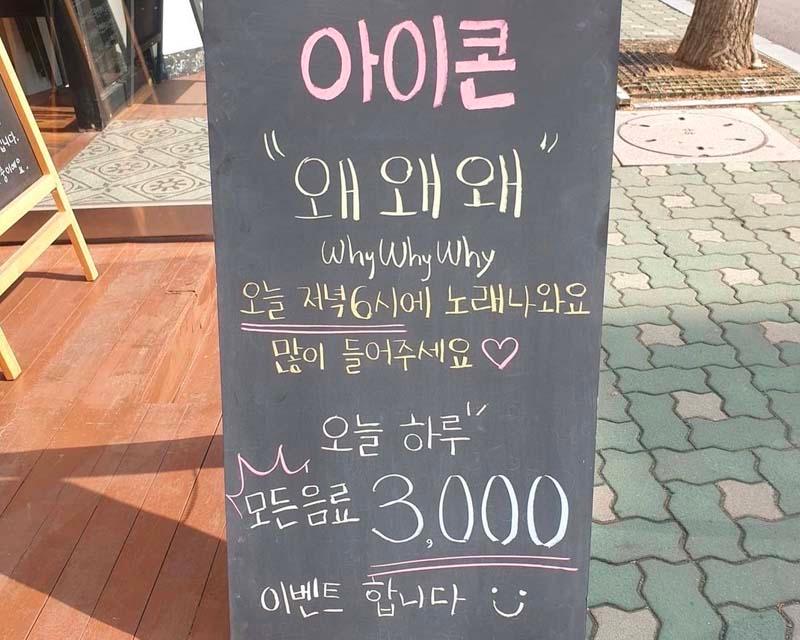 아이콘
"왜 왜 왜"
Why Why Why
오늘 저녁6시에 노래나와요
많이 들어주세요♡
오늘 하루
모든음료 3,000
이벤트 합니다